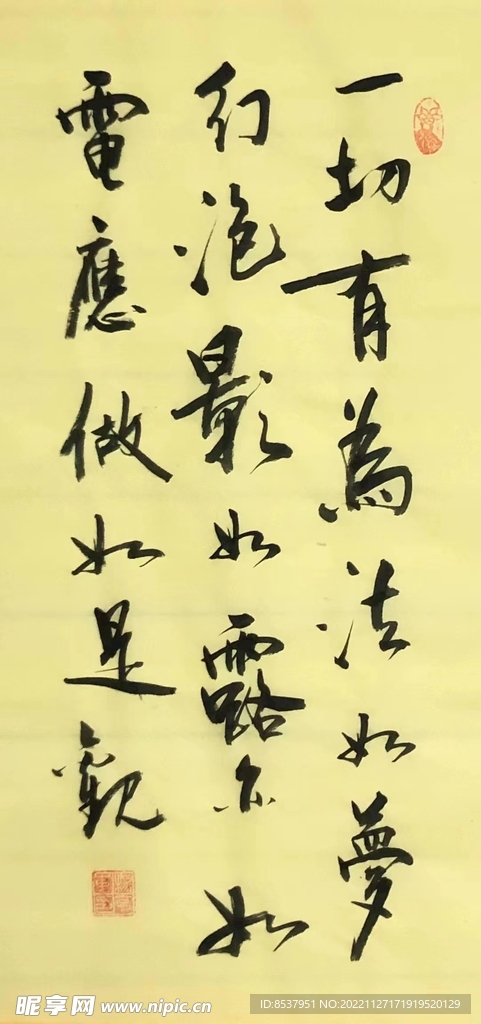 一切有為法如夢
幻泡影如露亦如
電應做如是觀
昵享网 www.nipic.cn
ID:8537951 NO:20221127171919520129